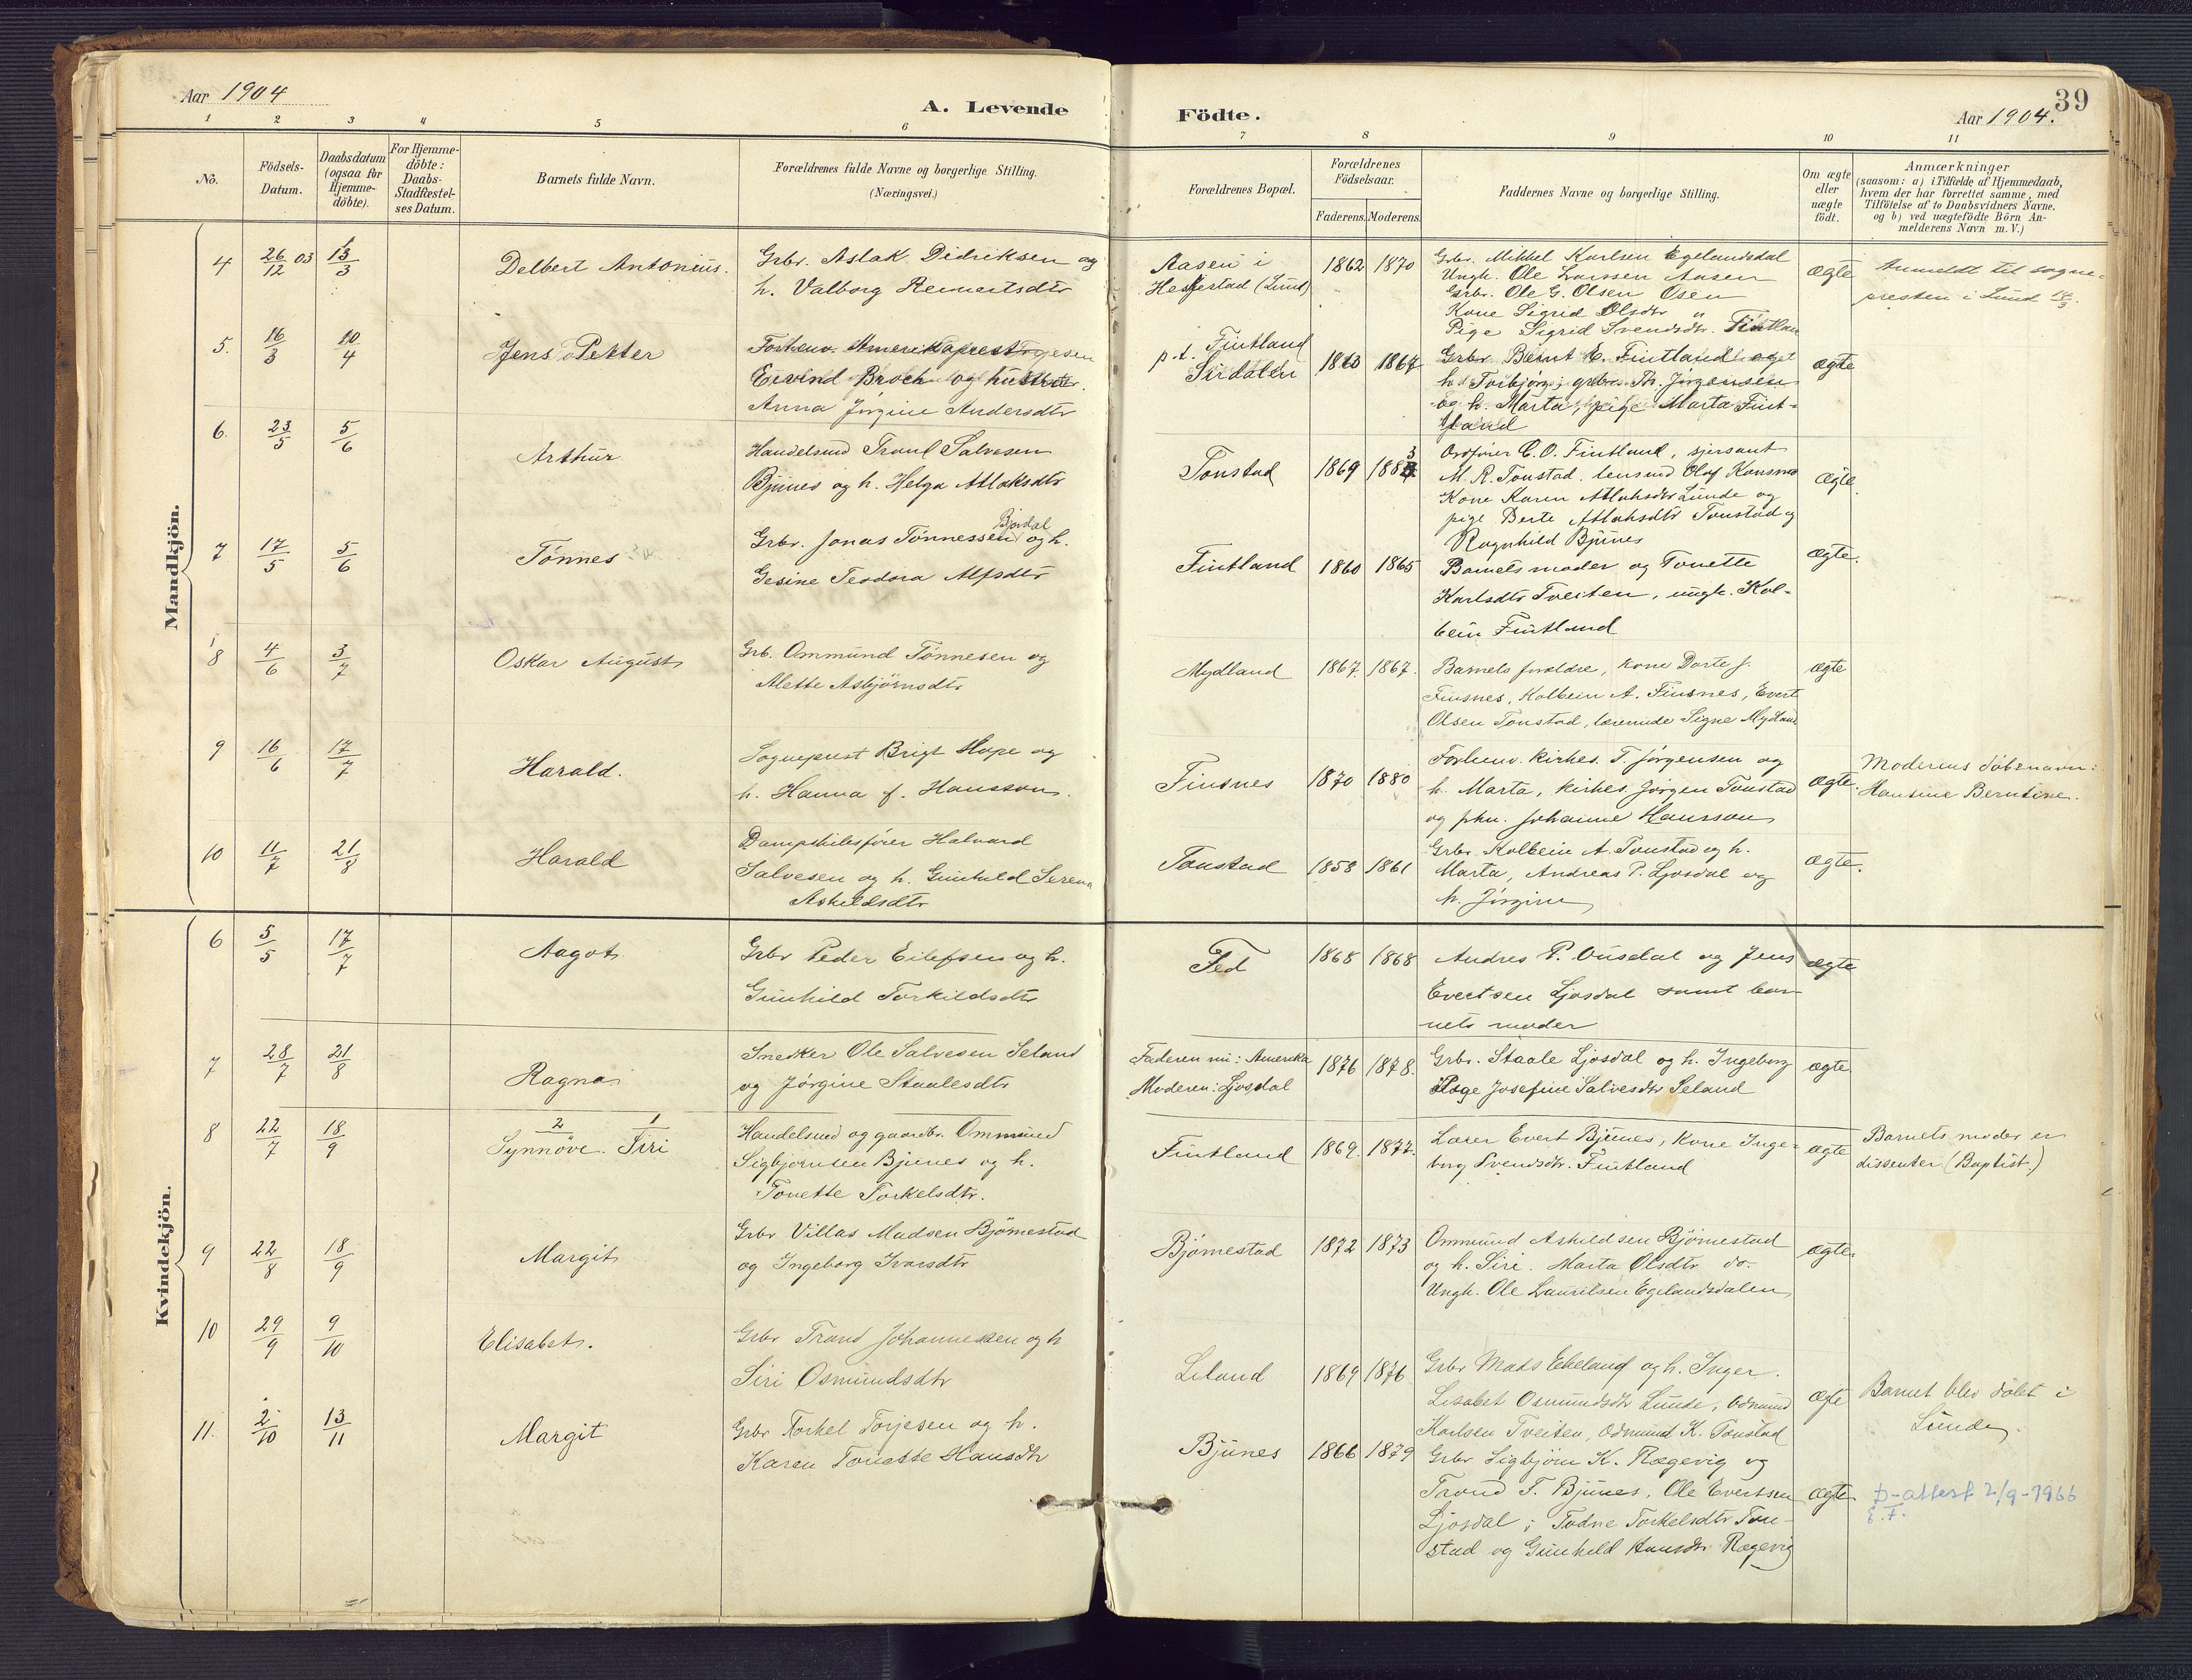 39
Aar 1904
A. Levende
Födte.
Aar 1904.
1 2 3 4 5 6 7 8 9 10 11
No.
Födsels-
Datum.
Daabsdatum
(ogsaa for
Hjemme-
döbte).
For Hjemme-
döbte:
Daabs-
Stadfæstel-
ses Datum.
Barnets fulde Navn.
Forældrenes fulde Navne og borgerlige Stilling.
(Næringsvei.)
Forældrenes Bopæl.
Forældrenes
Födselsaar.
Faderens. Moderens.
Faddernes Navne og borgerlige Stilling.
Om ægte
eller
uægte
födt.
Anmærkninger
(saasom: a) i Tilfælde af Hjemmedaab,
hvem der har forrettet samme, med
Tilföielse af to Daabsvidners Navne.
og b) ved uægtefödte Börn An-
melderens Navn m. V.)
Mandkjön.
4 26/12 03 13/3
Delbert Antonius.
Grbr. Aslak Didriksen og
h. Valborg Reinertsdtr
Aasen i
Heskestad (Lund)
1862 1870
Grbr. Mikkel Karlsen Egelandsdal
Ungk. Ole Larssen Aasen
Grbr. Ole G. Olsen Osen
Kone Sigrid Olsdtr "
Pige Sigrid Svendsdtr. Fintland
ægte
Anmeldt til sogne-
presten i Lund 14/3.
5. 16/3 10/4
Jens Petter
Eivind Broch og hustru
Anna Jörgine Andersdtr
p.t. Fintland
Sirdalen
1863 1867
Grbr. Bernt E. Fintland og
h. Torbjörg, grbr. Th. Jörgensen
og h. Marta, pige Marta Fint-
land
ægte
6. 23/5 5/6
Arthur
Handelsmd Traul Salvesen
Bjunes og h. Helga Atlaksdtr
Tonstad
1869 1883
Ordförer C. O. Fintland, sjersant
M. R. Tonstad, lensmd Olaf Konsmo
Kone Karen Atlaksdtr Lunde og
pige Berte Atlaksdtr Tonstad og
Ragnhild Bjunes
ægte.
7 17/5 5/6
Tönnes
Grbr. Jonas Tönnessen Bjordal og h.
Gesine Teodora Alfsdtr
Fintland
1860 1865
Barnets moder og Tonette
Karlsdtr Tveiten, ungk. Kol-
bein Fintland
ægte.
8 4/6 3/7
Oskar August
Grb. Ommund Tönnesen og
Alette Asbjörnsdtr
Mydland
1867. 1867.
Barnets foreldre, kone Dorte J.
Finsnes, Kolbein A. Finsnes, Evert
Olsen Tonstad, lærerinde Signe Mydland
ægte
9 16/6 17/7
Harald.
Sogneprest Brigt Hope og
h. Hanna f. Hansson.
Finsnes
1870 1880
Forhenv. kirkes. T. Jörgensen og
h. Marta, kirkes. Jörgen Tonstad
og frkn. Johanne Hansson
ægte.
Moderens döbenavn:
Hansine Berntine.
10 11/7 21/8
Harald
Dampskibsförer Halvard
Salvesen og h. Gunhild Serena
Askildsdtr
Tonstad
1858 1861
Grbr Kolbein A. Tonstad og h.
Marta, Andreas P. Ljosdal og
h. Jörgine
ægte.
Kvindekjön.
6 5/5 17/7
Aagot
Grbr Peder Eilefsen og h.
Gunhild Torkildsdtr
Fed
1868 1868
Andres P. Ousdal og Jens
Evertsen Ljosdal samt bar-
nets moder
ægte
7 28/7 21/8
Ragna
Snedker Ole Salvesen Seland
og Jörgine Staalesdtr
Faderen nu: Amerika
Moderen: Ljosdal
1876 1878.
Grbr. Staale Ljosdal og h. Ingeborg
Pige Josefine Salvesdtr Seland
ægte.
8 22/7 18/9
2 1
Synnöve. Siri
Handelsmd og gaardbr. Ommund
Sigbjörnsen Bjunes og h.
Tonette Torkelsdtr.
Fintland
1869. 1872.
Lærer Evert Bjunes, kone Inge-
borg Svendsdtr. Fintland
ægte
Barnets moder er
dissenter (Baptist.)
9 22/8 18/9
Margit
Grbr Villas Madsen Björnestad
og Ingeborg Ivarsdtr
Björnestad
1872 1873
Ommund Askildsen Björnestad
og h. Siri. Marta Olsdtr do-
Ungk. Ole Lauritsen Egelandsdalen
ægte.
10 29/9 9/10
Elisabet.
Grbr Trond Johannessen og h
Siri Osmundsdtr
Liland
1869 1876
Grbr Mads Eheland og h. Inger.
Lisabet Osmundsdtr Lunde, Odmund
Karlsen Tveiten, Odmund K. Tonstad
ægte
Barnet blev döbt i
Lunde.
11. 2/10 13/11
Margit
Grbr Torkel Torjesen og h.
Karen Tonette Hansdtr
Bjunes
1866 1879
Grbr Sigbjörn K. Rægevig og
Trond T. Bjunes, Ole Evertsen
Ljosdal; Todne Torkelsdtr Ton-
stad og Gunhild Hansdtr Rægevig
ægte.
p-attest 2/9-1966
E.F.